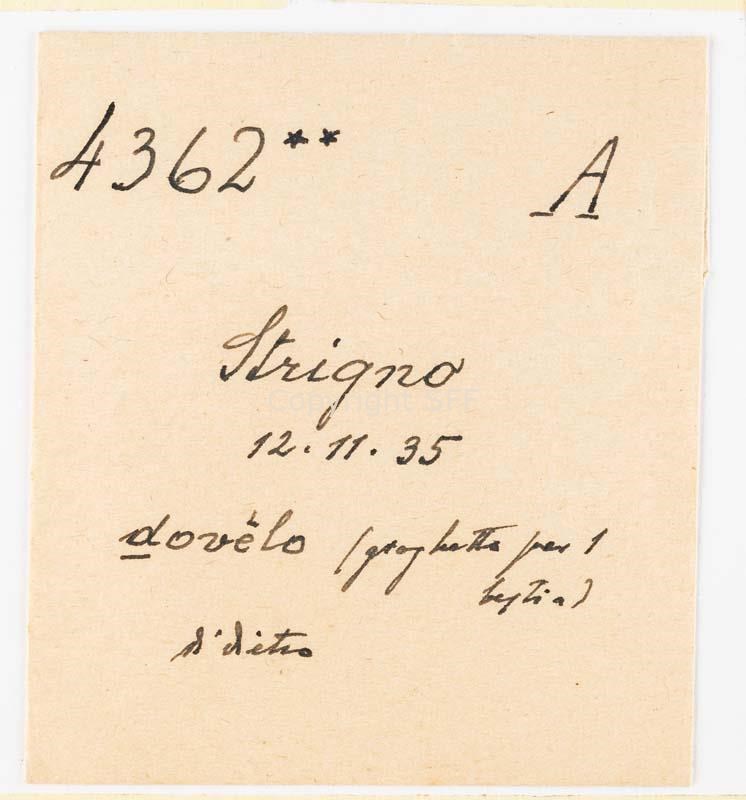 4362** A
Strigno
12.11.35
dovëlo (gioghetto per 1
bestia)
di dietro
Copyright SPF